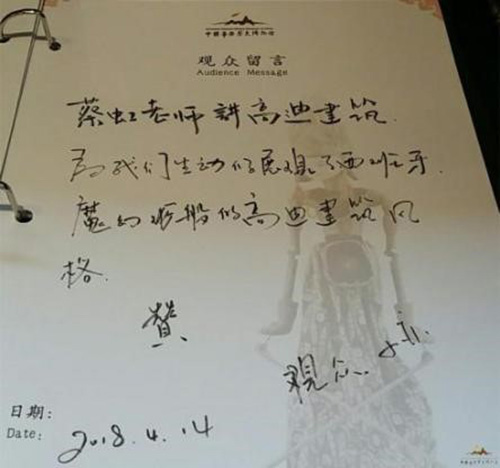 观众留言
Audience Message
蔡虹老师讲高迪建筑.
为我们生动的展现了西班牙.
魔幻般的高迪建筑风
格.
赞
观众
日期:
Date: 2018.4.14